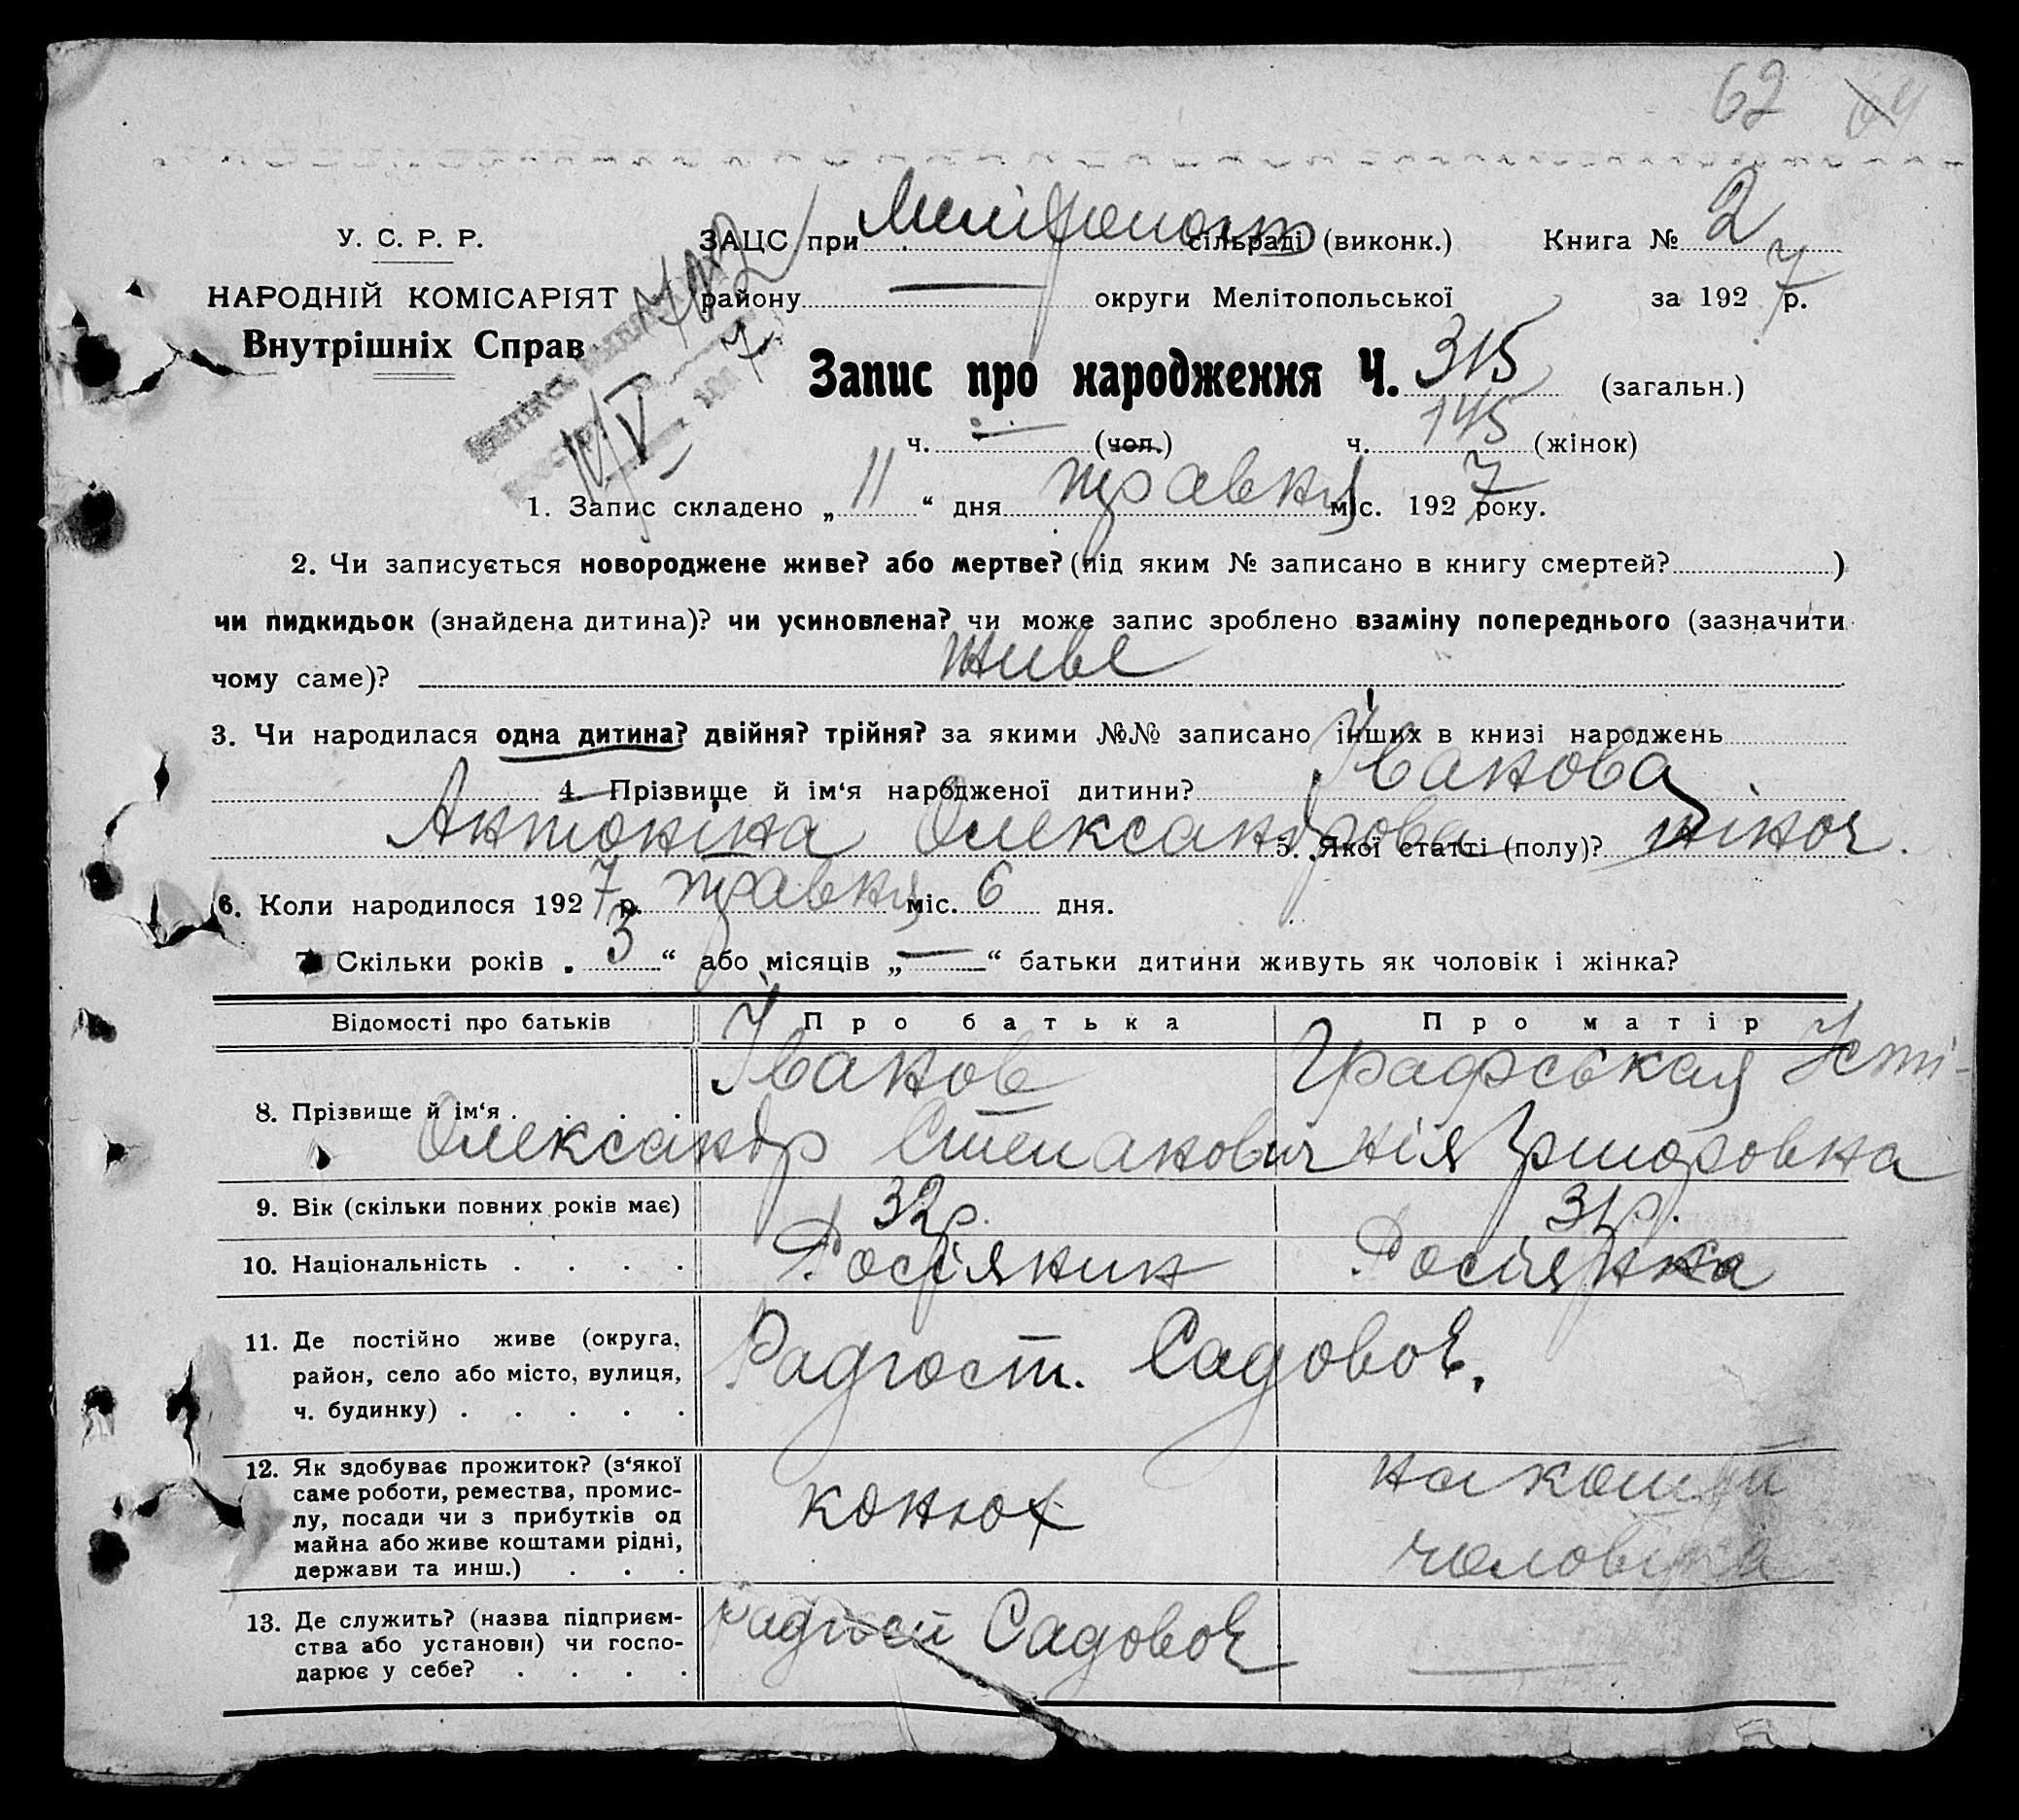 62 64
У. С. Р. Р.
ЗАЦС при сільраді (виконк.) Книга № 2
НАРОДНІЙ КОМІСАРІЯТ
району — округи Мелітопольської за 1927 р.
Внутрішніх Справ
Запис про народження Ч. 315 (загальн.)
ч. — (чол.) ч. 145 (жінок)
1. Запис складено „ 11 “ дня травня міс. 1927 року.
2. Чи записується новороджене живе? або мертве? (під яким № записано в книгу смертей? )
чи пидкидьок (знайдена дитина)? чи усиновлена? чи може запис зроблено взаміну попереднього (зазначити
чому саме)? живе
3. Чи народилася одна дитина? двійня? трійня? за якими №№ записано інших в книзі народжень
4. Прізвище й ім‘я народженої дитини? Іванова
Антоніна Олександрова 5. Якої статті (полу)? жіноч.
6. Коли народилося 1927 р. травня міс. 6 дня.
7. Скільки років „ 3 “ або місяців „ — “ батьки дитини живуть як чоловік і жінка?
Відомості про батьків Про батька Про матір
Іванов Графськая Усті-
8. Прізвище й ім‘я . . . .
Олександр Степанович нія
9. Вік (скільки повних років має) 32 р. 31 р.
10. Національність . . . . Росіянин Росіянка
11. Де постійно живе (округа,
район, село або місто, вулиця,
ч. будинку) . . . . .
Радгосп. Садовоє.
12. Як здобуває прожиток? (з‘якої
саме роботи, ремества, промис-
лу, посади чи з прибутків од
майна або живе коштами рідні,
держави та инш.) . . .
конюх на кошти
чоловіка
13. Де служить? (назва підприєм-
ства або установи) чи госпо-
дарює у себе? . . . .
Радгосп Садовоє —